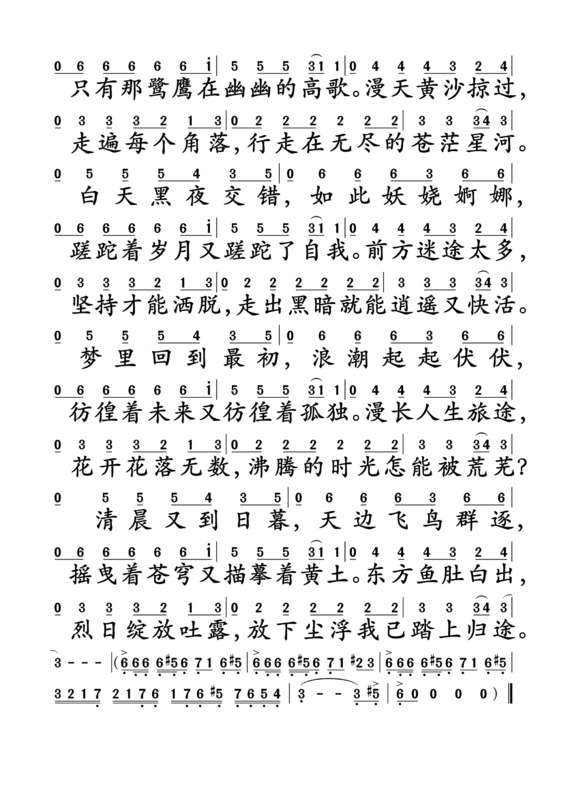 0 6 6 6 6 6 i| 5 5 5 31 1|0 4 4 4 3 2 4|
只有那鹭鹰在幽幽的高歌。漫天黄沙掠过,
0 3 3 3 2 1 3|0 2 2 2 2 2 2| 3 3 3 34 3|
走遍每个角落,行走在无尽的苍茫星河。
0 5 5 5 4 3 5|0 6 6 6 3 6 6|
白天黑夜交错,如此妖娆婀娜,
0 6 6 6 6 6 i| 5 5 5 31 1|0 4 4 4 3 2 4|
蹉跎着岁月又蹉跎了自我。前方迷途太多,
0 3 3 3 2 1 3|0 2 2 2 2 2 2| 3 3 3 34 3|
坚持才能洒脱,走出黑暗就能逍遥又快活。
0 5 5 5 4 3 5|0 6 6 6 3 6 6|
梦里回到最初,浪潮起起伏伏,
0 6 6 6 6 6 i| 5 5 5 31 1|0 4 4 4 3 2 4|
彷徨着未来又彷徨着孤独。漫长人生旅途,
0 3 3 3 2 1 3|0 2 2 2 2 2 2| 3 3 3 34 3|
花开花落无数,沸腾的时光怎能被荒芜?
0 5 5 5 4 3 5|0 6 6 6 3 6 6|
清晨又到日暮,天边飞鸟群逐,
0 6 6 6 6 6 i| 5 5 5 31 1|0 4 4 4 3 2 4|
摇曳着苍穹又描摹着黄土。东方鱼肚白出,
0 3 3 3 2 1 3|0 2 2 2 2 2 2| 3 3 3 34 3|
烈日绽放吐露,放下尘浮我已踏上归途。
3 - - - |(6666 6#56 71 6#5|6666 6#56 71 #23|6666 6#56 71 6#5|
3217 2176 176#5 7654|3 - - 3 #5|6 0 0 0 0 )‖